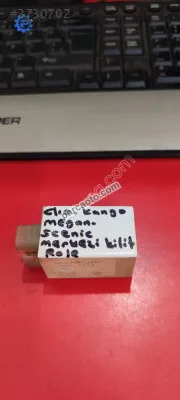 #3730702
PER
Clio Kango
megan.
Scenic
merkezi kilit
Role